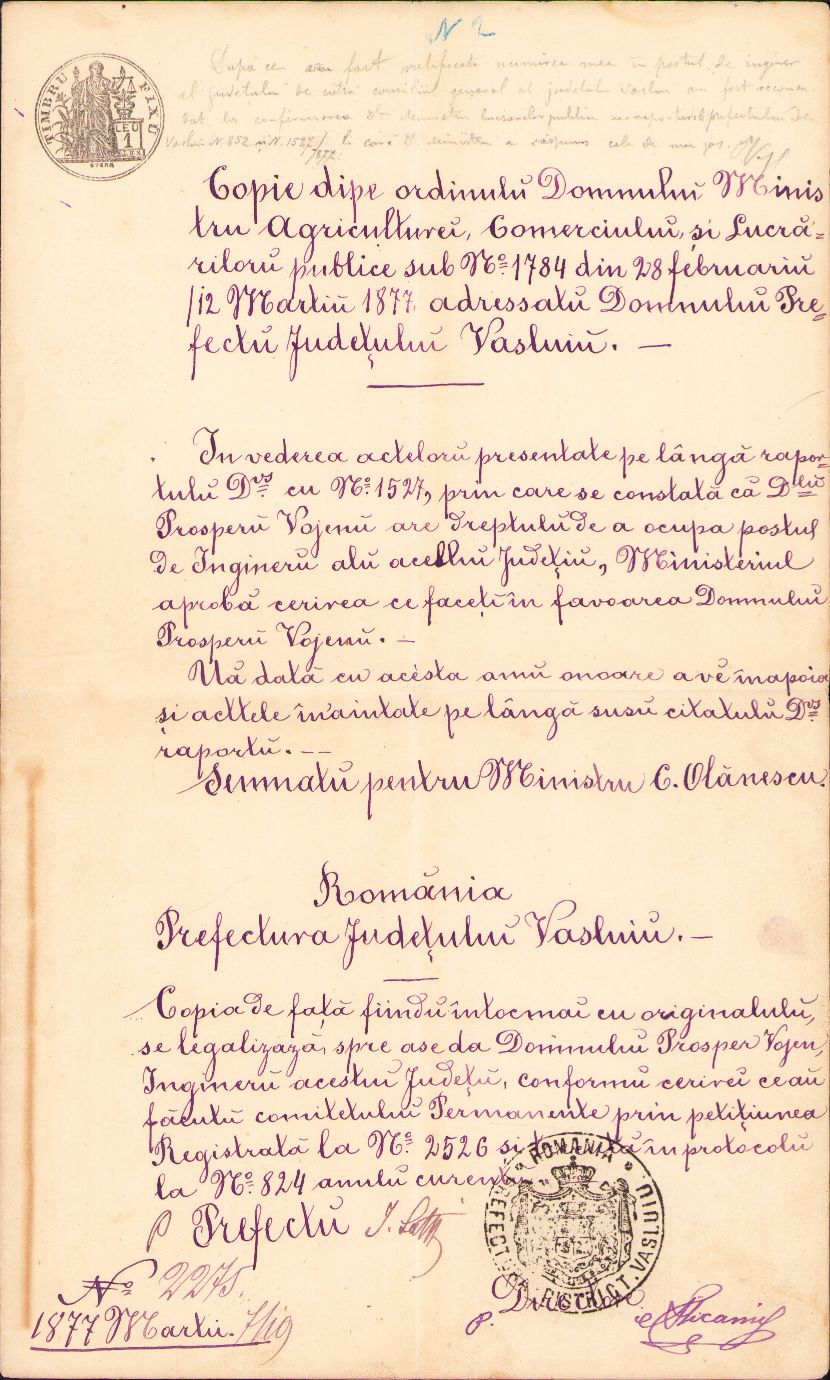 N 2
După ce au fost ratificată numirea mea în postul de inginer
al județului de către consiliu general al județului Vaslui am fost recoman
dat la confirmarea Dlui Ministru lucrărilor publice cu raporturile prefectului de
Vaslui N. 852 și N. 1527/1877 la care Dl Ministru a răspuns cele de mai jos.
TIMBRU FIXU
LEU
1
Copie dipe ordinulu Domnului Minis
tru Agriculturei, Comerciului, și Lucră-
riloru publice sub No. 1784 din 28 februariu
/12 Martiu 1877. adressatu Domnului Pre-
fectu Județului Vasluiu. —
In vederea acteloru presentate pe lângă rapor-
tulu Dvs cu No. 1527, prin care se constată că Dlui
Prosperu Vojenu are dreptulu de a ocupa postul
de Ingineru alu acestui Județiu, Ministeriul
aprobă cerirea ce faceți în favoarea Domnului
Prosperu Vojenu. —
Uă dată cu acésta amu onoare a vĕ înapoia
și acttele înaintate pe lângă susu citatulu Dvs
raportu. —
Semnatu pentru Ministru C. Olănescu.
România
Prefectura Județului Vasluiu. —
Copia de față fiindu întocmai cu originalulu,
se legalizază, spre a se da Domnului Prosper Vojen,
Ingineru acestui Județu, conformu cerirei ce au
făcutu comitetului Permanente prin petițiunea
Registrată la No. 2526 și trecută în protocolu
la No. 824 anulu curent
p Prefectu
ROMANIA
PREFECTURA DISTRICT. VASLUIU
No 2275.
1877 Martii. 7/19
p. Directore